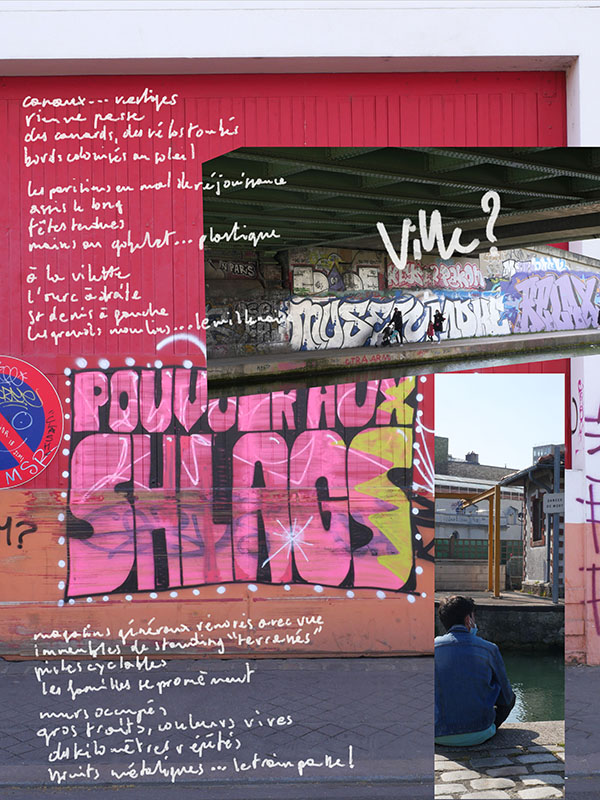 canaux... vertiges
rien ne passe
des canards, des vélos tombés
bords colonisés au soleil
les parisiens en mal de réjouissance
assis le long
têtes tendues
mains au gobelet... plastique
Ville?
à la vilette
l'ourc à droite
st denis à gauche
les grands moulins...
POUVOIR AUX
SHLAGS
MSR
magasins généraux rénovés avec vue
immeubles de standing
pistes cyclables
les familles se promènent
murs occupés
gros traits, couleurs vives
répétés
bruits métaliques... le train passe!